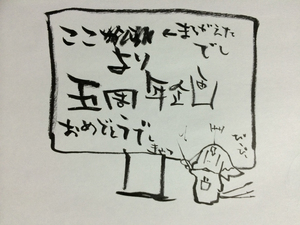 ここ ←まちがえた
でし
より
五周年企画
おめでとうでし
びび